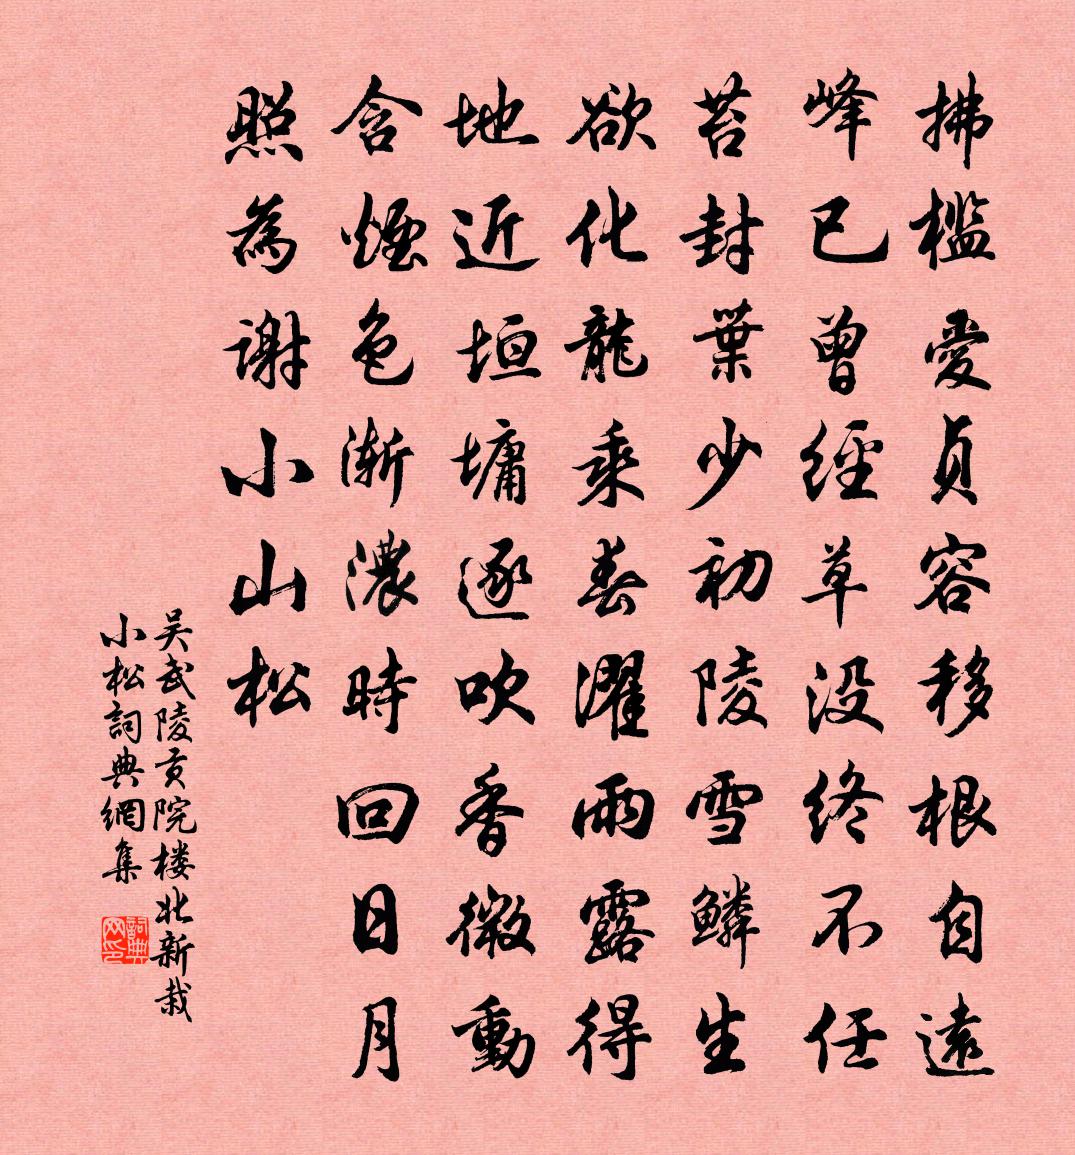 拂檻愛貞容移根自遠
峰已曾經草没終不任
苔封葉少初陵雪鱗生
欲化龍乘春濯雨露得
地近垣墉逐吹香微動
含煙色漸濃時回日月
照為謝小山松
吴武陵貢院楼北新栽
小松詞典網集
詞典网印